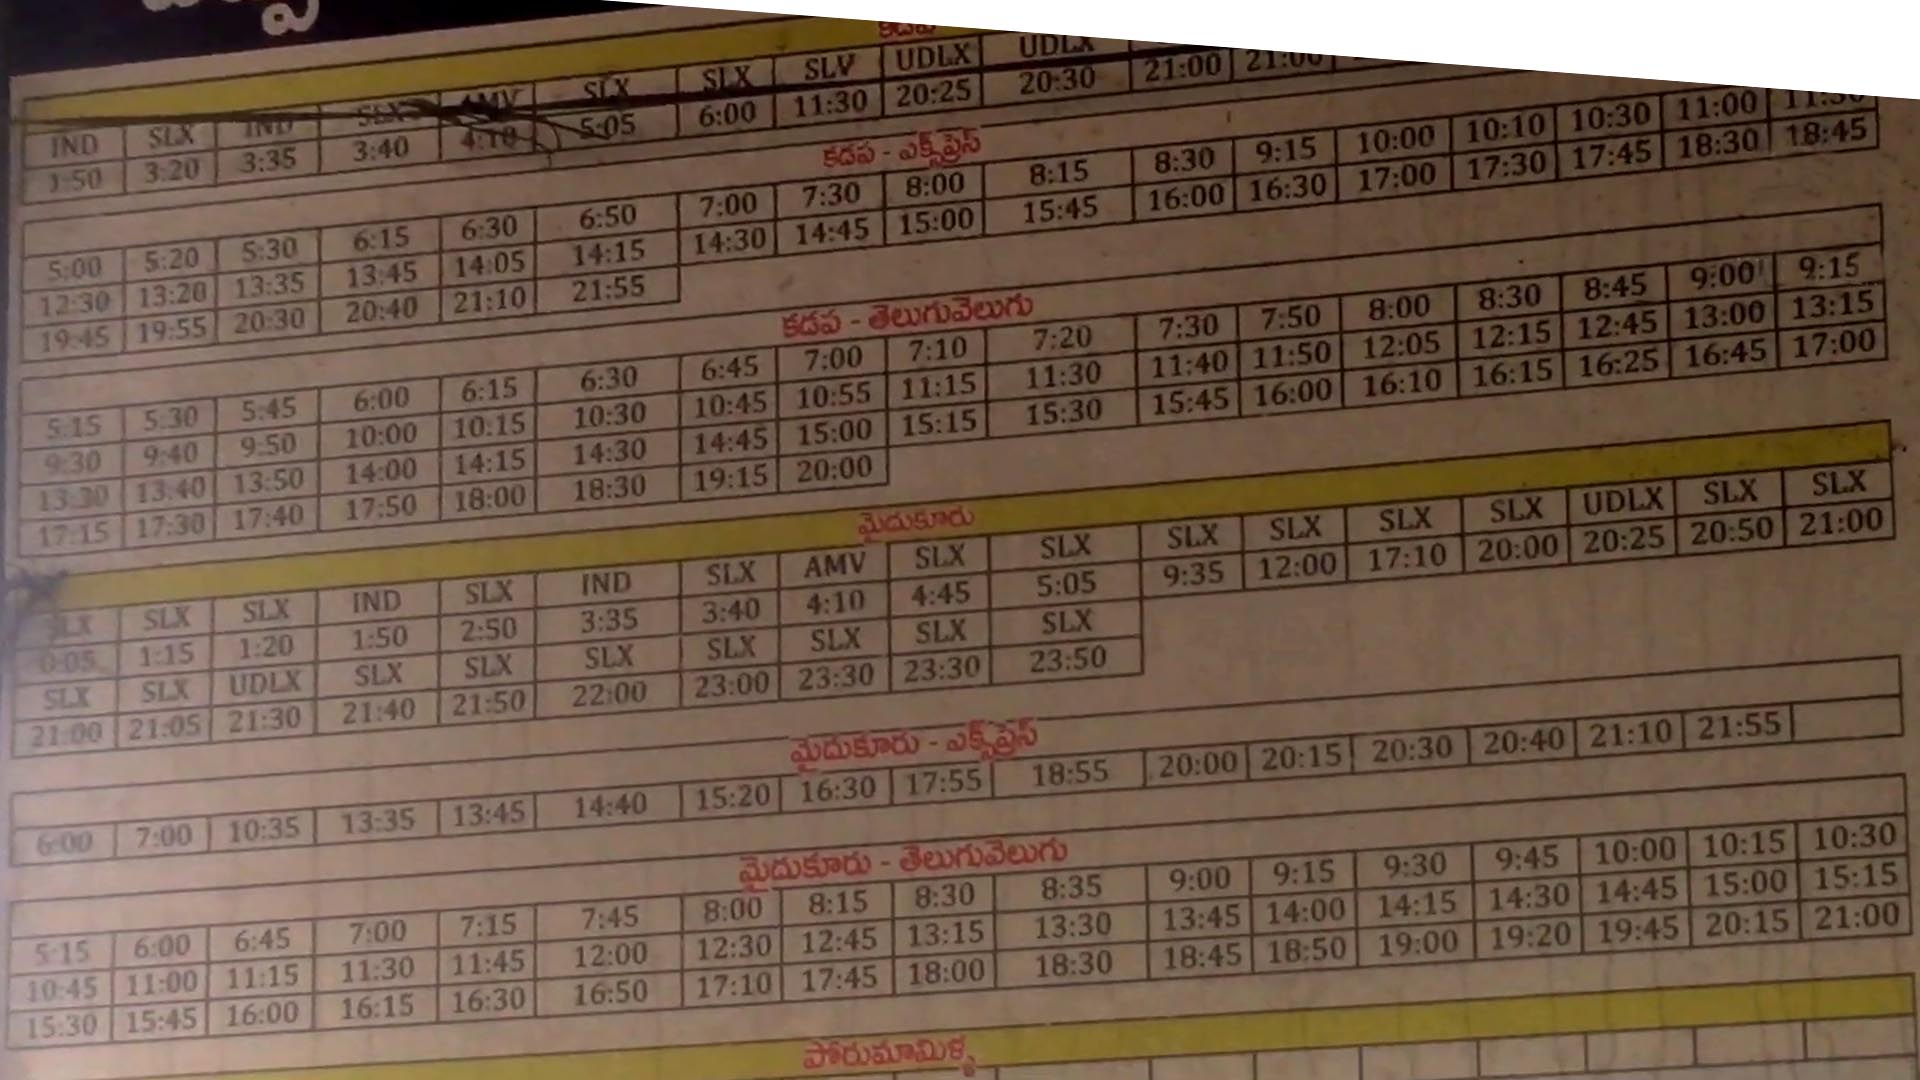 కడప
IND SLX IND SLX AMV SLX SLX SLV UDLX UDLX
1:50 3:20 3:35 3:40 4:10 5:05 6:00 11:30 20:25 20:30 21:00 21:00
కడప - ఎక్స్‌ప్రెస్
5:00 5:20 5:30 6:15 6:30 6:50 7:00 7:30 8:00 8:15 8:30 9:15 10:00 10:10 10:30 11:00 11:30
12:30 13:20 13:35 13:45 14:05 14:15 14:30 14:45 15:00 15:45 16:00 16:30 17:00 17:30 17:45 18:30 18:45
19:45 19:55 20:30 20:40 21:10 21:55
కడప - తెలుగువెలుగు
5:15 5:30 5:45 6:00 6:15 6:30 6:45 7:00 7:10 7:20 7:30 7:50 8:00 8:30 8:45 9:00 9:15
9:30 9:40 9:50 10:00 10:15 10:30 10:45 10:55 11:15 11:30 11:40 11:50 12:05 12:15 12:45 13:00 13:15
13:30 13:40 13:50 14:00 14:15 14:30 14:45 15:00 15:15 15:30 15:45 16:00 16:10 16:15 16:25 16:45 17:00
17:15 17:30 17:40 17:50 18:00 18:30 19:15 20:00
మైదుకూరు
SLX SLX SLX IND SLX IND SLX AMV SLX SLX SLX SLX SLX SLX UDLX SLX SLX
0:05 1:15 1:20 1:50 2:50 3:35 3:40 4:10 4:45 5:05 9:35 12:00 17:10 20:00 20:25 20:50 21:00
SLX SLX UDLX SLX SLX SLX SLX SLX SLX SLX
21:00 21:05 21:30 21:40 21:50 22:00 23:00 23:30 23:30 23:50
మైదుకూరు - ఎక్స్‌ప్రెస్
6:00 7:00 10:35 13:35 13:45 14:40 15:20 16:30 17:55 18:55 20:00 20:15 20:30 20:40 21:10 21:55
మైదుకూరు - తెలుగువెలుగు
5:15 6:00 6:45 7:00 7:15 7:45 8:00 8:15 8:30 8:35 9:00 9:15 9:30 9:45 10:00 10:15 10:30
10:45 11:00 11:15 11:30 11:45 12:00 12:30 12:45 13:15 13:30 13:45 14:00 14:15 14:30 14:45 15:00 15:15
15:30 15:45 16:00 16:15 16:30 16:50 17:10 17:45 18:00 18:30 18:45 18:50 19:00 19:20 19:45 20:15 21:00
పోరుమామిళ్ళ